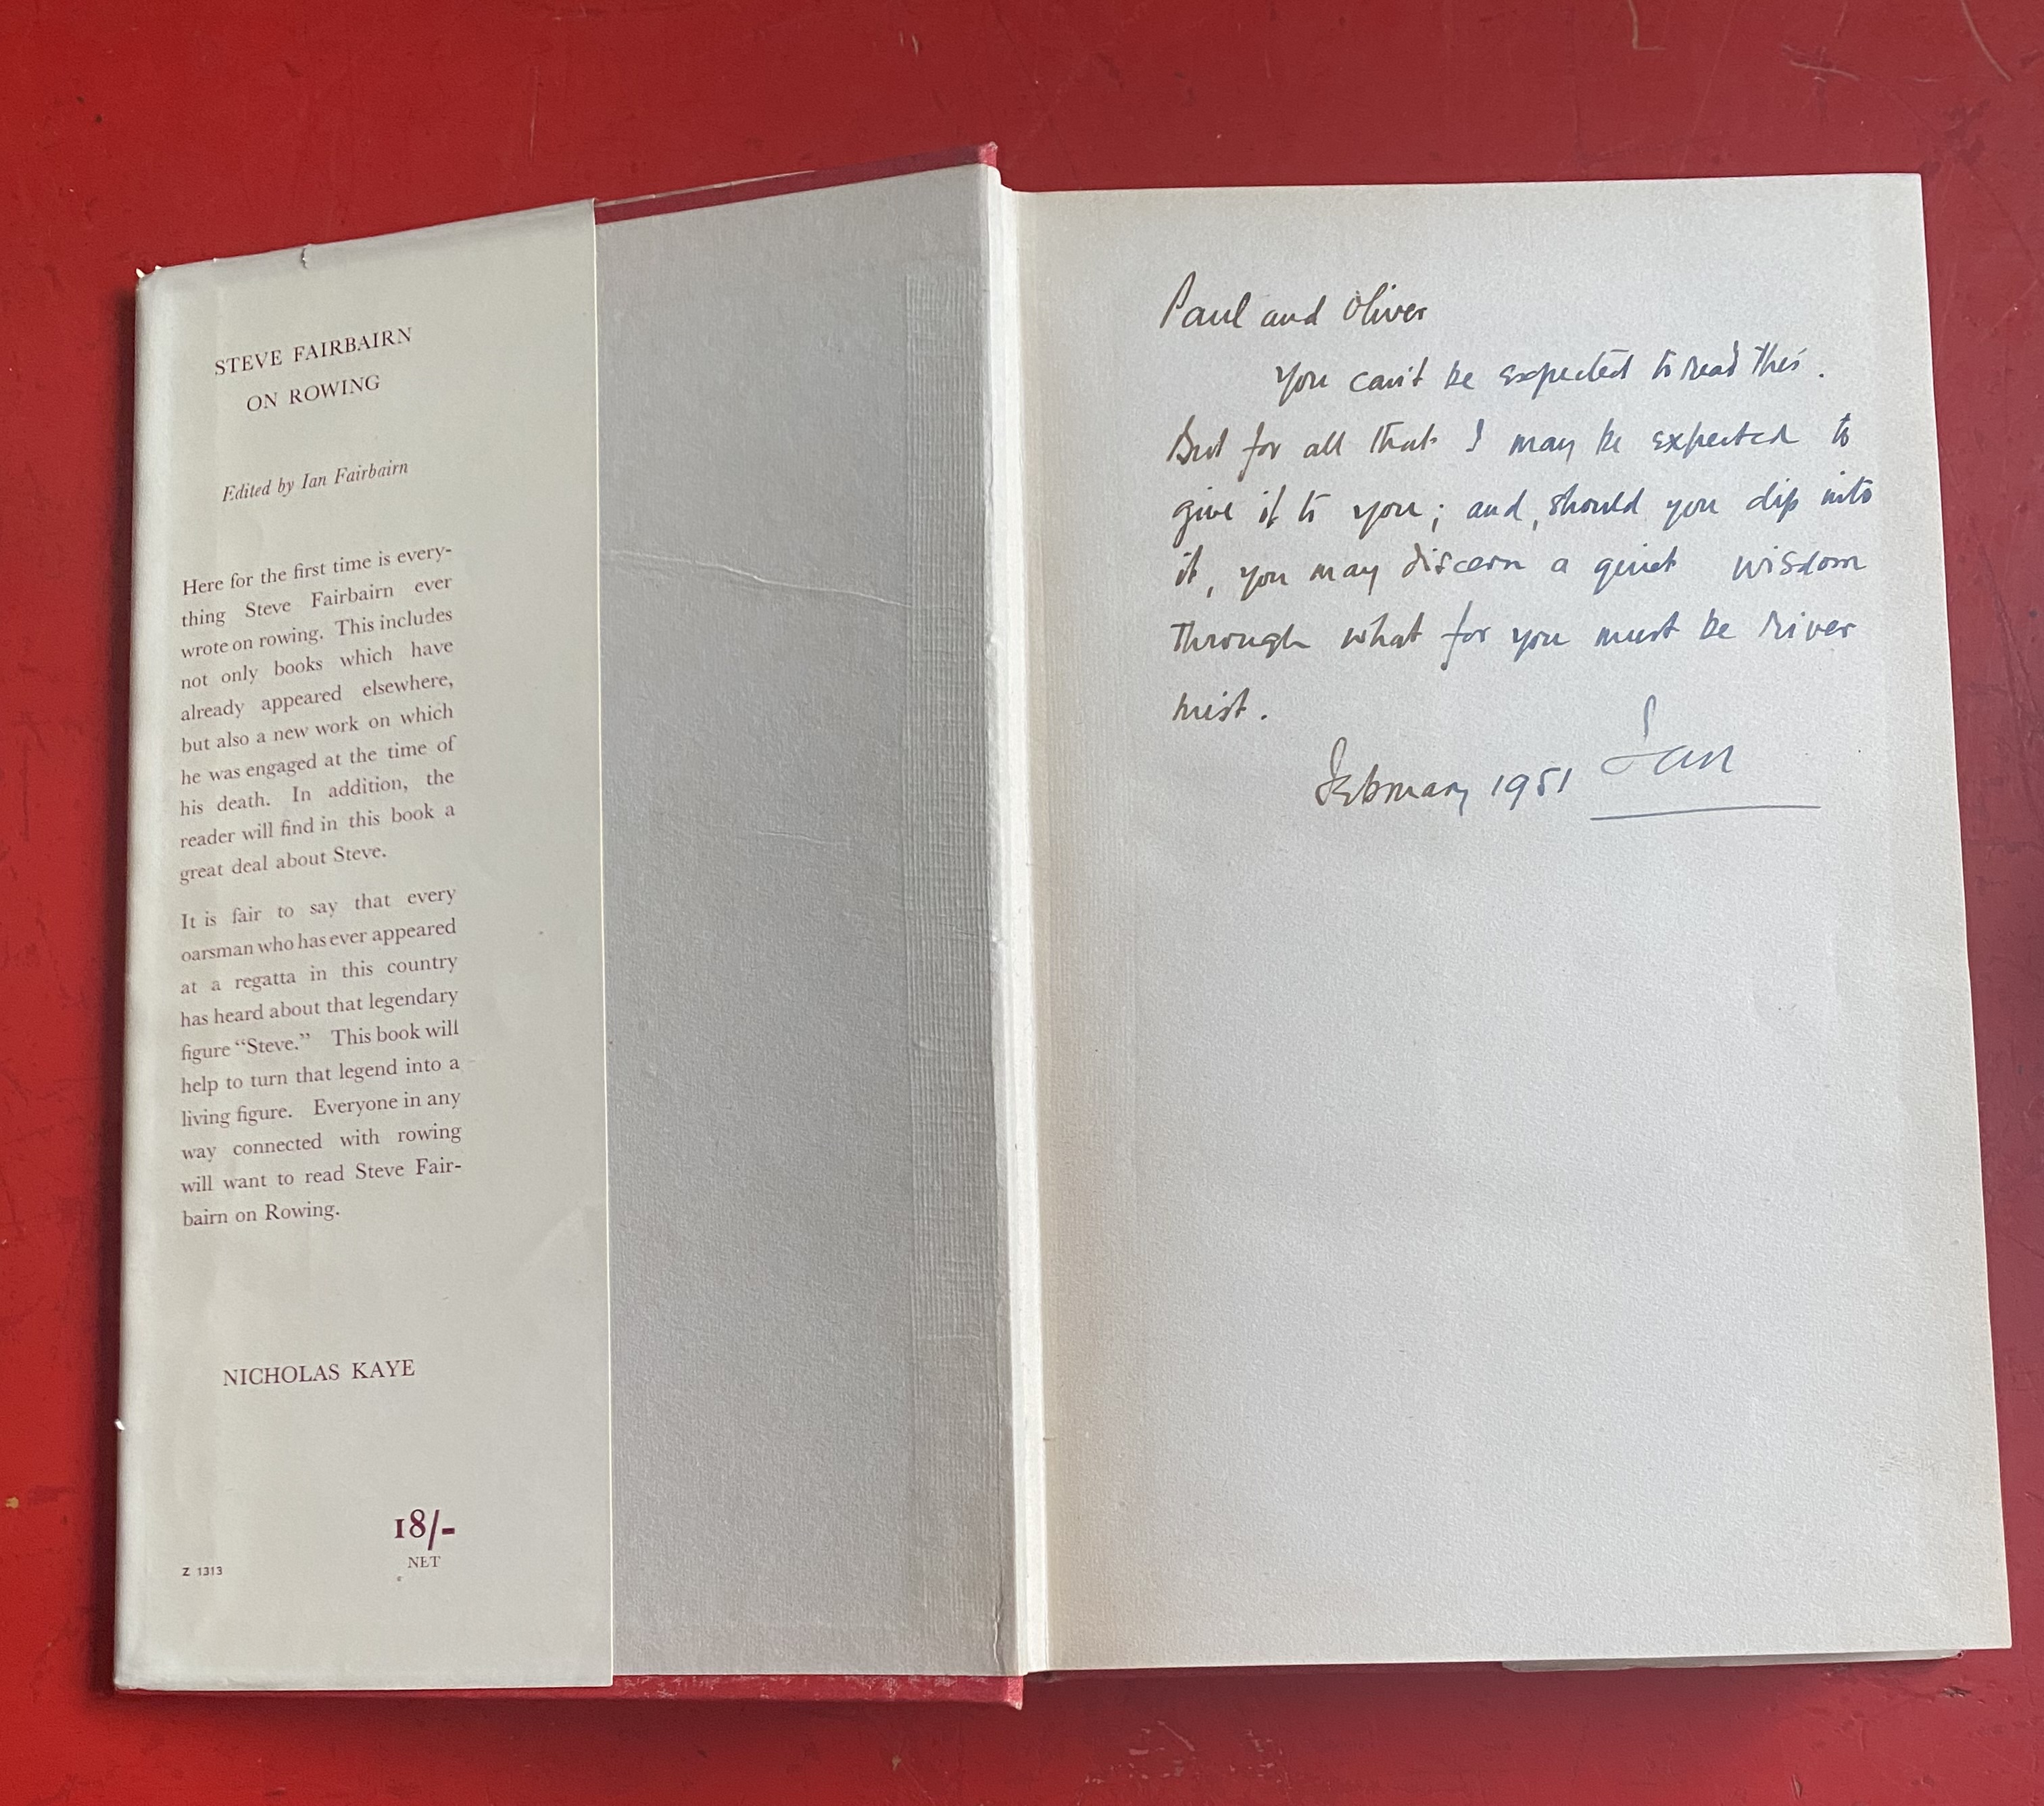 STEVE FAIRBAIRN
ON ROWING
Edited by Ian Fairbairn
Here for the first time is every-
thing Steve Fairbairn ever
wrote on rowing. This includes
not only books which have
already appeared elsewhere,
but also a new work on which
he was engaged at the time of
his death. In addition, the
reader will find in this book a
great deal about Steve.
It is fair to say that every
oarsman who has ever appeared
at a regatta in this country
has heard about that legendary
figure “Steve.” This book will
help to turn that legend into a
living figure. Everyone in any
way connected with rowing
will want to read Steve Fair-
bairn on Rowing.
NICHOLAS KAYE
18/-
NET
Z 1313
Paul and Oliver
You can't be expected to read this.
But for all that I may be expected to
give it to you; and, should you dip into
it, you may discern a quiet wisdom
through what for you must be river
mist.
February 1951 Ian